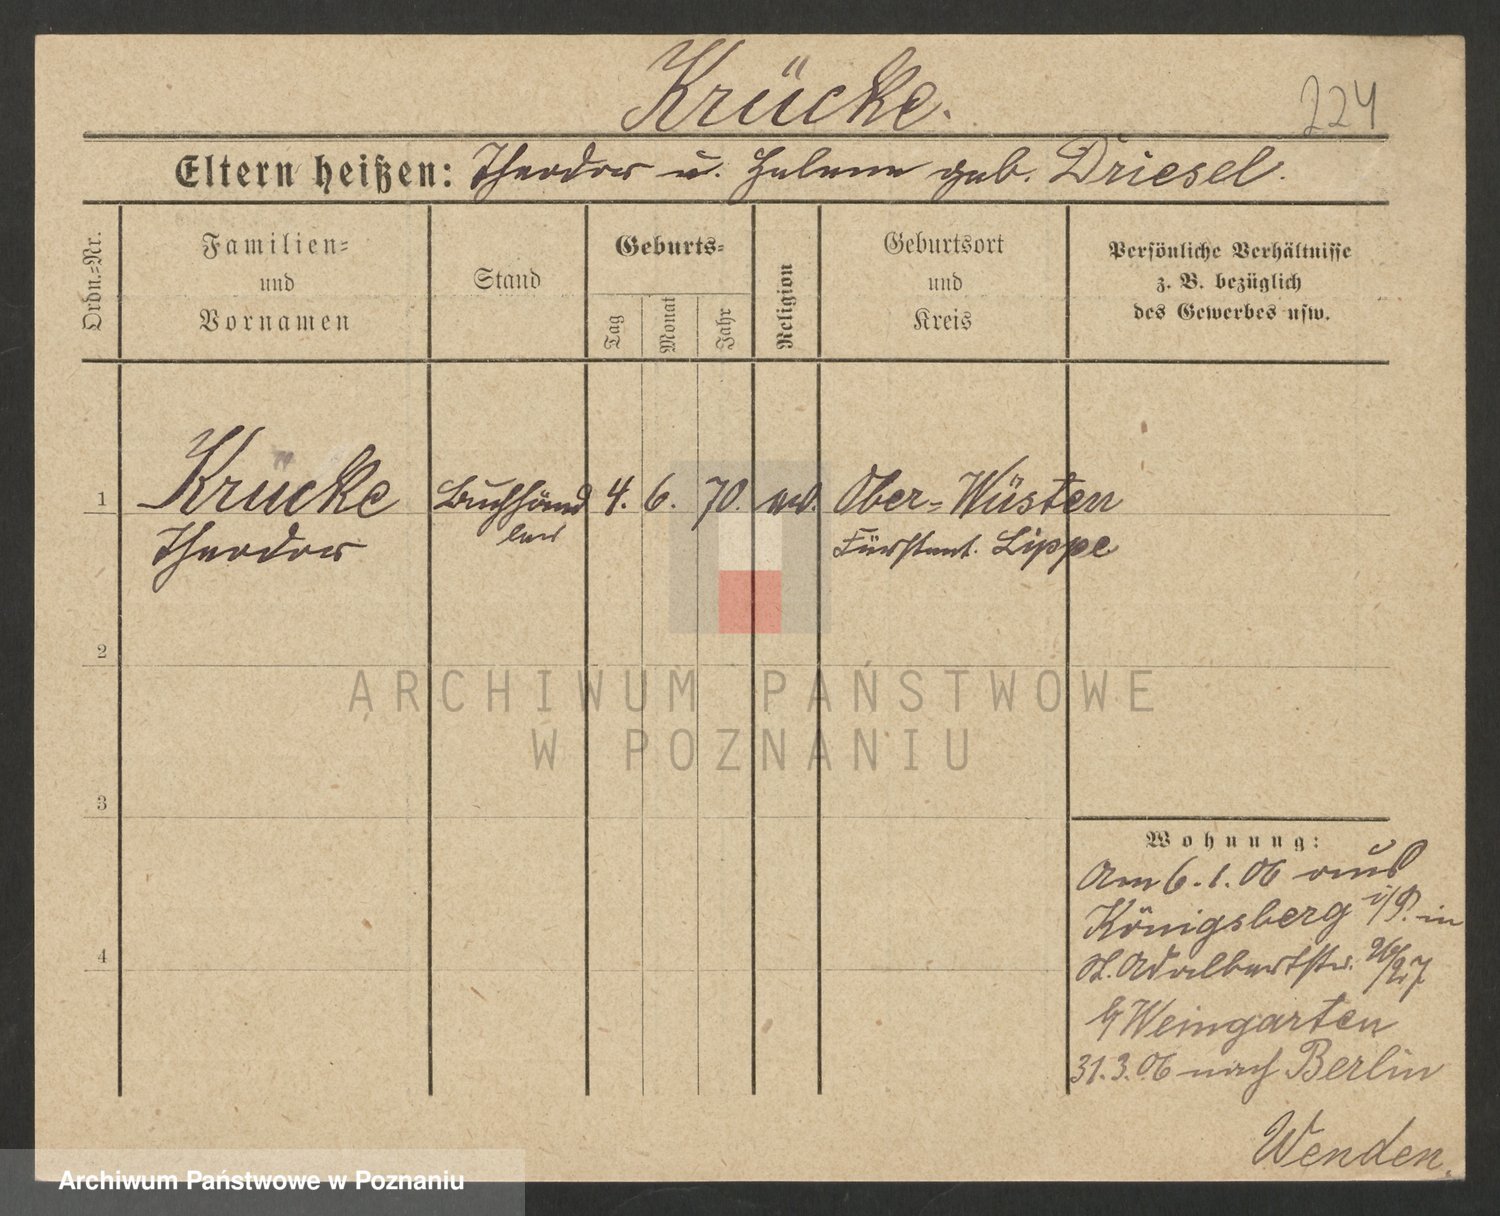 Krücke.
224
Eltern heißen: Theodor u. Helene geb. Driesel.
Ordn.=Nr.
Familien=
und
Vornamen
Stand
Geburts=
Tag
Monat
Jahr
Religion
Geburtsort
und
Kreis
Persönliche Verhältnisse
z. B. bezüglich
des Gewerbes usw.
1 Krücke Buchhänd 4. 6. 70. Ober=Wüsten
Theodor ler Fürstent. Lippe
2
3
4
Wohnung:
Am 6.1.06 aus
Königsberg i/P. in
St. Adalbertstr. 26/27
b/ Weingarten
31.3.06 nach Berlin
Wenden.
ARCHIWUM PAŃSTWOWE
W POZNANIU
Archiwum Państwowe w Poznaniu